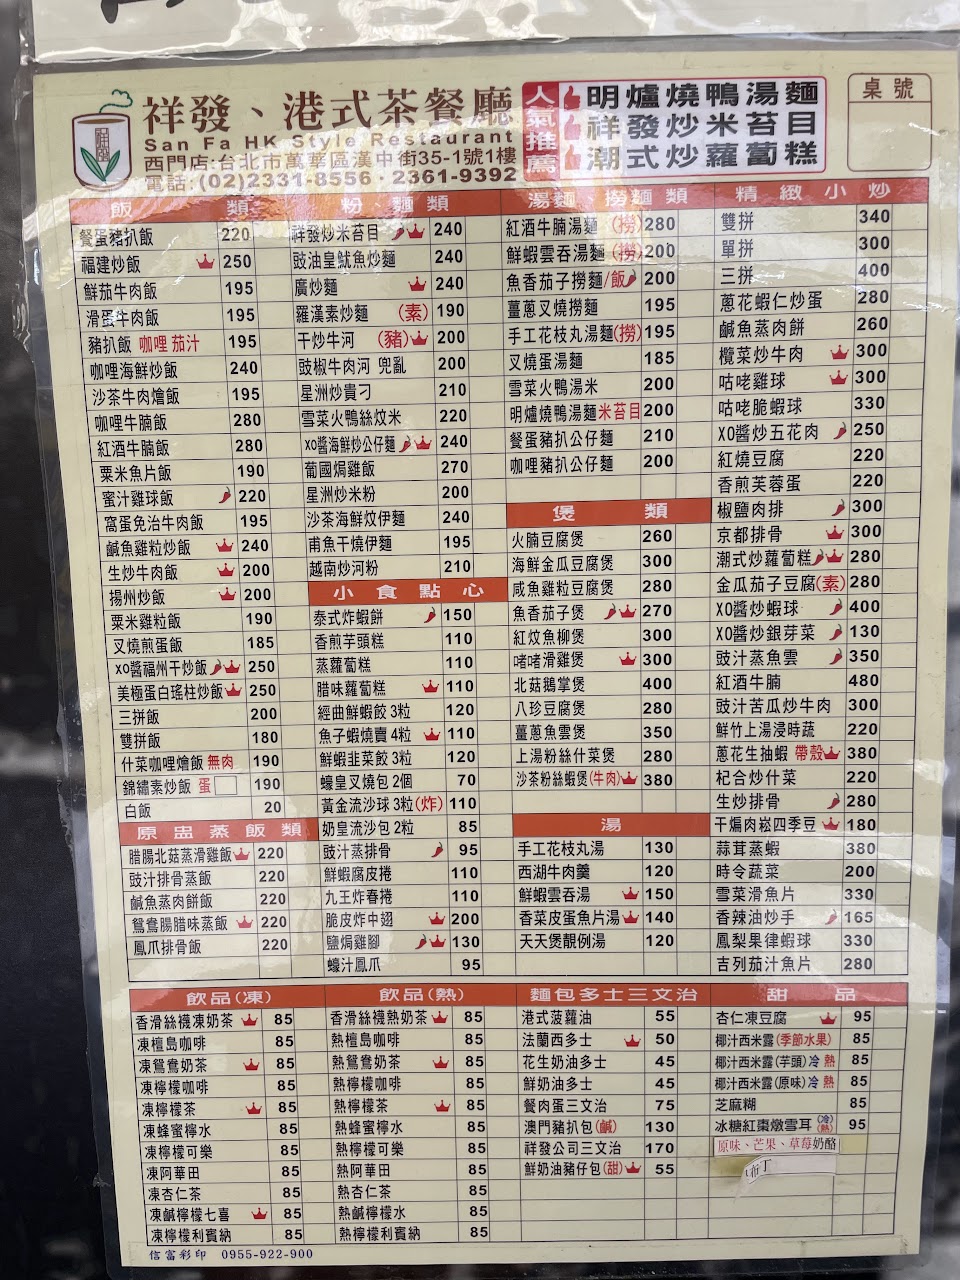 祥發、港式茶餐廳
San Fa HK Style Restaurant
西門店:台北市萬華區漢中街35-1號1樓
電話:(02)2331-8556·2361-9392
人氣推薦
明爐燒鴨湯麵
祥發炒米苔目
潮式炒蘿蔔糕
桌號
飯類
餐蛋豬扒飯 220
福建炒飯 250
鮮茄牛肉飯 195
滑蛋牛肉飯 195
豬扒飯 咖哩 茄汁 195
咖哩海鮮炒飯 240
沙茶牛肉燴飯 195
咖哩牛腩飯 280
紅酒牛腩飯 280
粟米魚片飯 190
蜜汁雞球飯 220
窩蛋免治牛肉飯 195
鹹魚雞粒炒飯 240
生炒牛肉飯 200
揚州炒飯 200
粟米雞粒飯 190
叉燒煎蛋飯 185
XO醬福州干炒飯 250
美極蛋白瑤柱炒飯 250
三拼飯 200
雙拼飯 180
什菜咖哩燴飯 無肉 190
錦繡素炒飯 蛋 190
白飯 20
原盅蒸飯類
腊腸北菇蒸滑雞飯 220
豉汁排骨蒸飯 220
鹹魚蒸肉餅飯 220
鴛鴦腸腊味蒸飯 220
鳳爪排骨飯 220
粉麵類
祥發炒米苔目 240
豉油皇魷魚炒麵 240
廣炒麵 240
羅漢素炒麵 (素) 190
干炒牛河 (豬) 200
豉椒牛肉河 兜亂 200
星洲炒貴刁 210
雪菜火鴨絲炆米 220
XO醬海鮮炒公仔麵 240
葡國焗雞飯 270
星洲炒米粉 200
沙茶海鮮炆伊麵 240
甫魚干燒伊麵 195
越南炒河粉 210
小食點心
泰式炸蝦餅 150
香煎芋頭糕 110
蒸蘿蔔糕 110
腊味蘿蔔糕 110
經曲鮮蝦餃 3粒 120
魚子蝦燒賣 4粒 110
鮮蝦韭菜餃 3粒 120
蠔皇叉燒包 2個 70
黃金流沙球 3粒(炸) 110
奶皇流沙包 2粒 85
豉汁蒸排骨 95
鮮蝦腐皮捲 110
九王炸春捲 110
脆皮炸中翅 200
鹽焗雞腳 130
蠔汁鳳爪 95
湯麵 撈麵類
紅酒牛腩湯麵 (撈) 280
鮮蝦雲吞湯麵 (撈) 200
魚香茄子撈麵/飯 200
薑蔥叉燒撈麵 195
手工花枝丸湯麵(撈) 195
叉燒蛋湯麵 185
雪菜火鴨湯米 200
明爐燒鴨湯麵米苔目 200
餐蛋豬扒公仔麵 210
咖哩豬扒公仔麵 200
煲類
火腩豆腐煲 260
海鮮金瓜豆腐煲 300
咸魚雞粒豆腐煲 280
魚香茄子煲 270
紅炆魚柳煲 300
啫啫滑雞煲 300
北菇鵝掌煲 400
八珍豆腐煲 280
薑蔥魚雲煲 350
上湯粉絲什菜煲 280
沙茶粉絲蝦煲(牛肉) 380
湯
手工花枝丸湯 130
西湖牛肉羹 120
鮮蝦雲吞湯 150
香菜皮蛋魚片湯 140
天天煲靚例湯 120
精緻小炒
雙拼 340
單拼 300
三拼 400
蔥花蝦仁炒蛋 280
鹹魚蒸肉餅 260
欖菜炒牛肉 300
咕咾雞球 300
咕咾脆蝦球 330
XO醬炒五花肉 250
紅燒豆腐 220
香煎芙蓉蛋 220
椒鹽肉排 300
京都排骨 300
潮式炒蘿蔔糕 280
金瓜茄子豆腐(素) 280
XO醬炒蝦球 400
XO醬炒銀芽菜 130
豉汁蒸魚雲 350
紅酒牛腩 480
豉汁苦瓜炒牛肉 300
鮮竹上湯浸時蔬 220
蔥花生抽蝦 帶殼 380
杞合炒什菜 220
生炒排骨 280
干煸肉崧四季豆 180
蒜茸蒸蝦 380
時令蔬菜 200
雪菜滑魚片 330
香辣油炒手 165
鳳梨果律蝦球 330
吉列茄汁魚片 280
飲品(凍)
香滑絲襪凍奶茶 85
凍檀島咖啡 85
凍鴛鴦奶茶 85
凍檸檬咖啡 85
凍檸檬茶 85
凍蜂蜜檸水 85
凍檸檬可樂 85
凍阿華田 85
凍杏仁茶 85
凍鹹檸檬七喜 85
凍檸檬利賓納 85
飲品(熱)
香滑絲襪熱奶茶 85
熱檀島咖啡 85
熱鴛鴦奶茶 85
熱檸檬咖啡 85
熱檸檬茶 85
熱蜂蜜檸水 85
熱檸檬可樂 85
熱阿華田 85
熱杏仁茶 85
熱鹹檸檬水 85
熱檸檬利賓納 85
麵包多士三文治
港式菠蘿油 55
法蘭西多士 50
花生奶油多士 45
鮮奶油多士 45
餐肉蛋三文治 75
澳門豬扒包(鹹) 130
祥發公司三文治 170
鮮奶油豬仔包(甜) 55
甜品
杏仁凍豆腐 95
椰汁西米露(季節水果) 85
椰汁西米露(芋頭)冷 熱 85
椰汁西米露(原味)冷 熱 85
芝麻糊 85
冰糖紅棗燉雪耳 (冷)(熱) 95
原味、芒果、草莓奶酪
布丁
信富彩印 0955-922-900